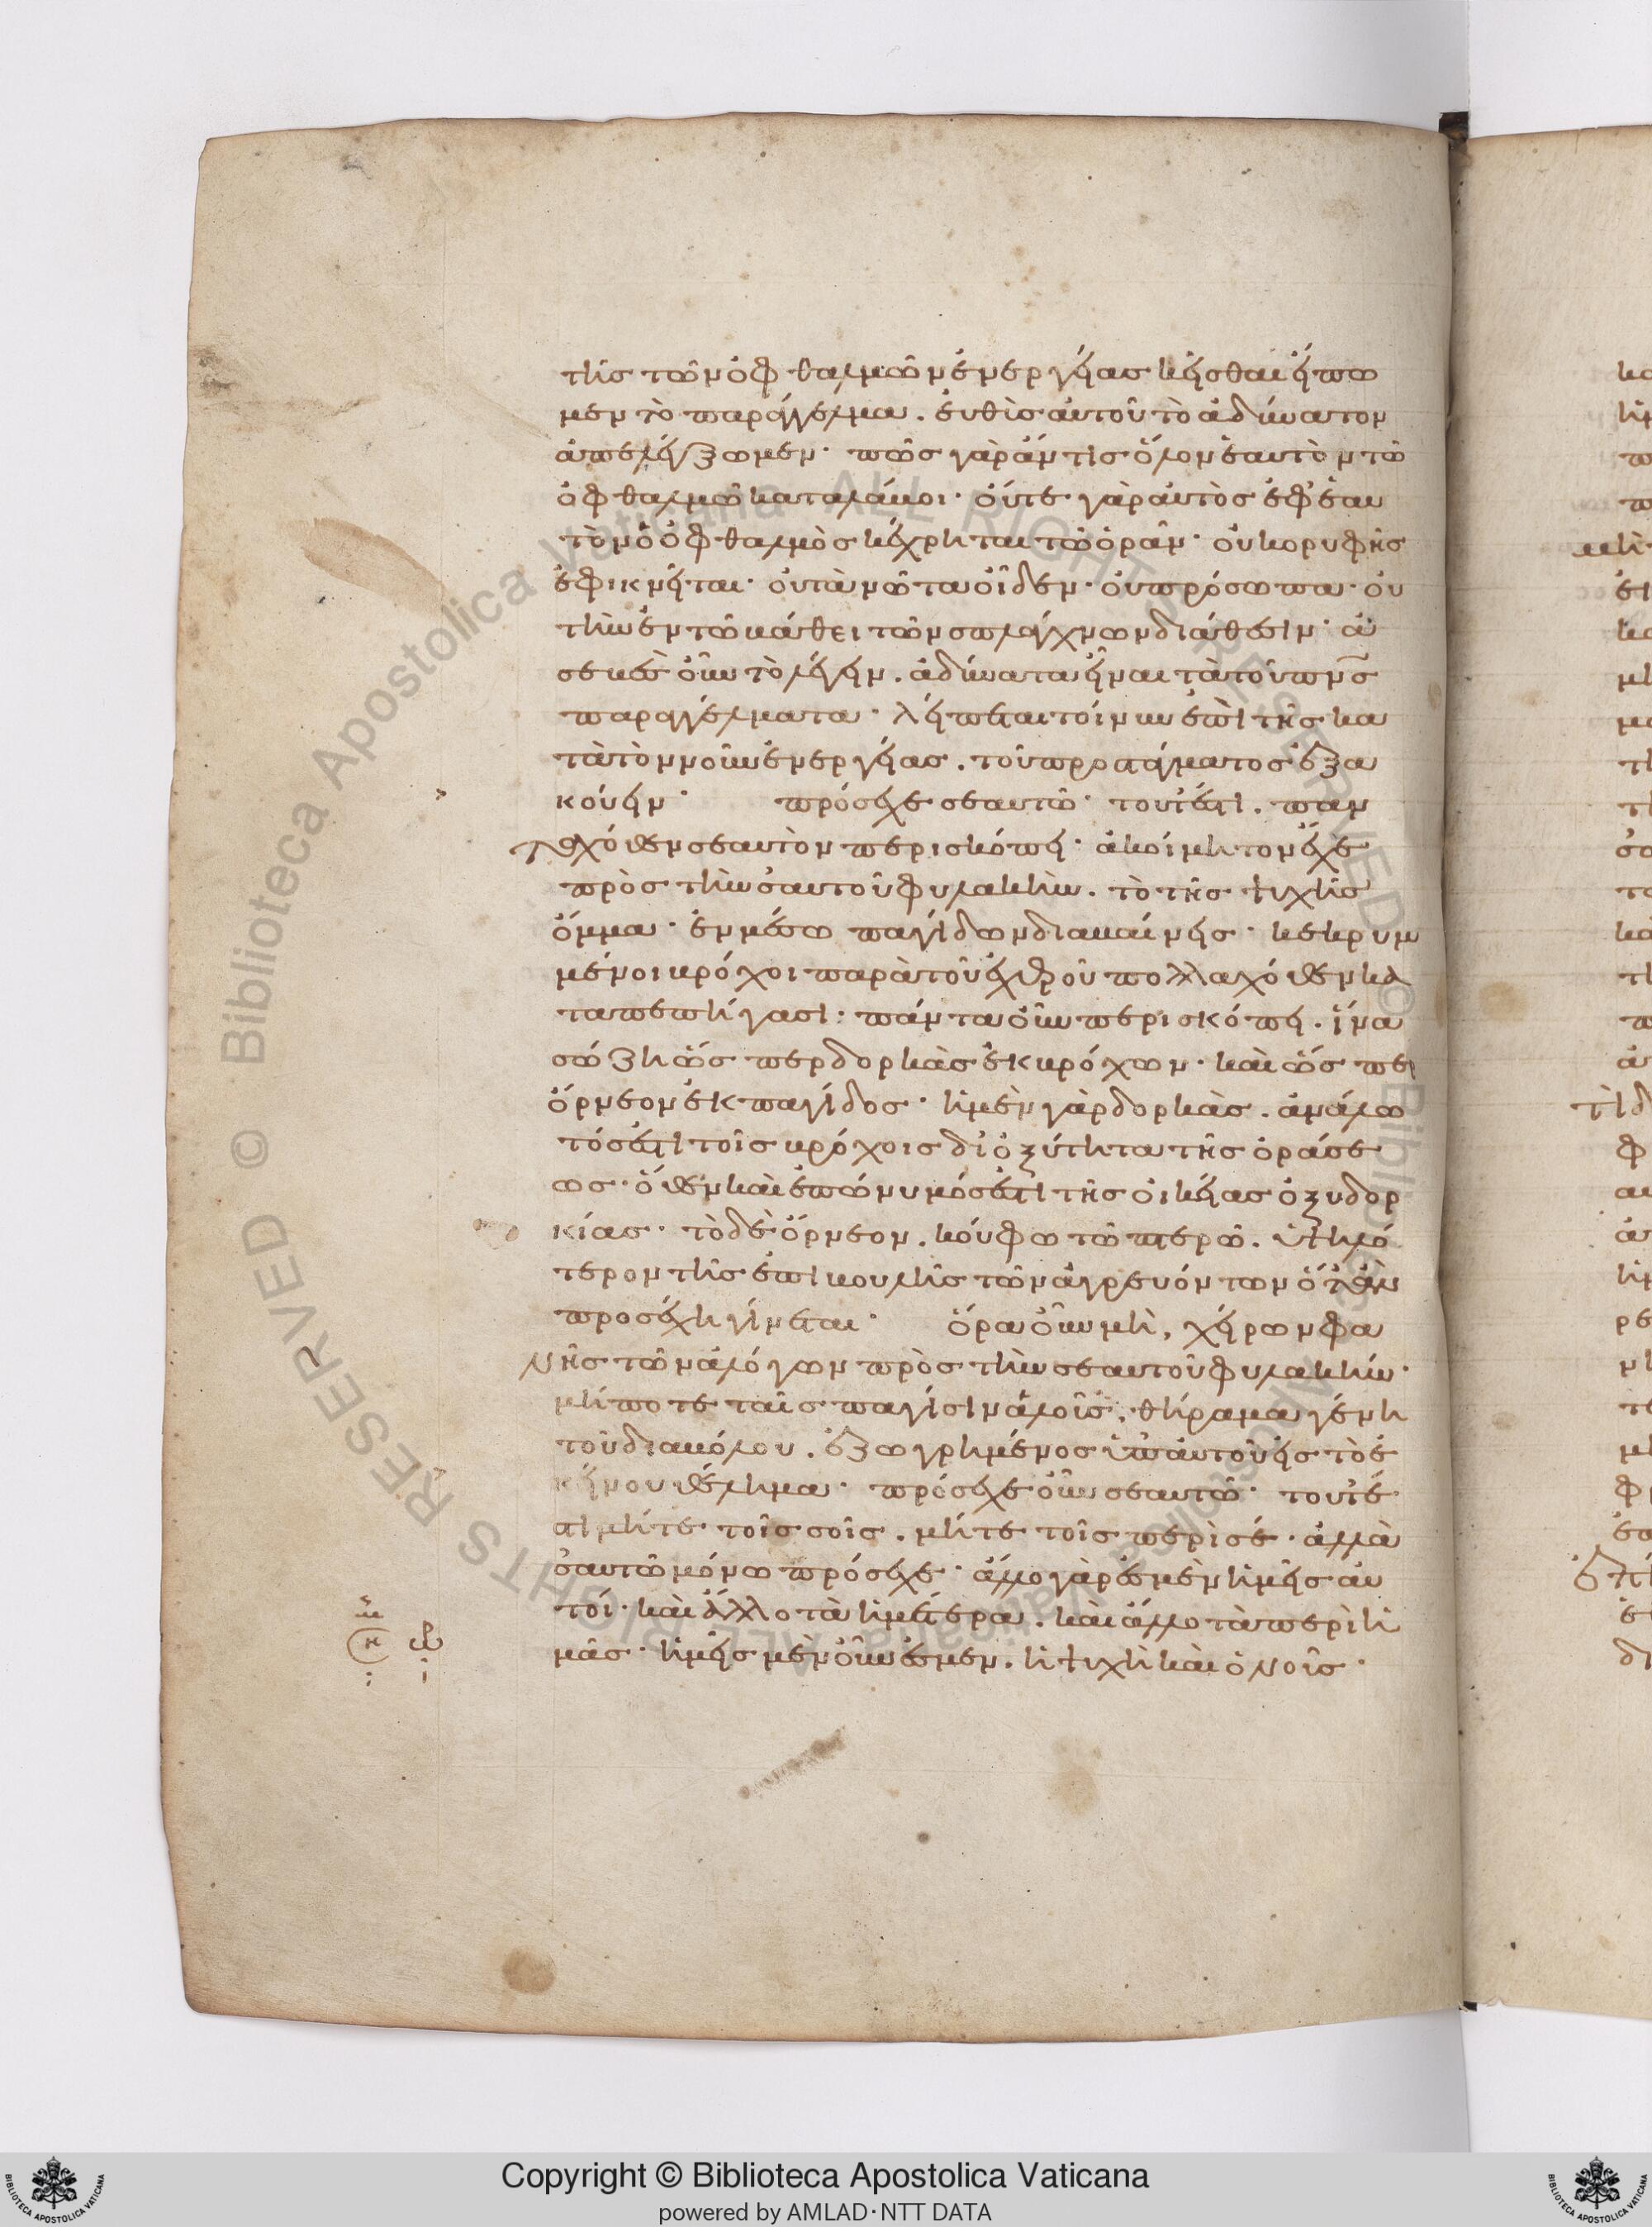 τῆς τῶν ὀφθαλμῶν ἐνεργείας κεῖσθαι εἴποι
μεν τὸ παράγγελμα. εὐθὺς αὐτοῦ τὸ ἀδύνατον
ἀπελέγξωμεν· πῶς γὰρ ἄν τις ὅλον ἑαυτὸν τῶ
ὀφθαλμῶ καταλάβοι· οὔτε γὰρ αὐτὸς ἐφ' ἑαυ
τὸν ὁ ὀφθαλμὸς κέχρηται τῶ ὁρᾶν· οὐ κορυφῆς
ἐφικνεῖται· οὐ τὰ νῶτα οἶδεν· οὐ πρόσωπα· οὐ
τὴν ἐν τῶ βάθει τῶν σπλάγχνων διάθεσιν· ἀ
σεβὲς οὖν τὸ λέγειν. ἀδύνατα εἶναι τὰ τοῦ πνς
παραγγέλματα· λείπεται τοίνυν ἐπὶ τῆς κα
τὰ τὸν νοῦν ἐνεργείας. τοῦ προστάγματος ἐξα
κούειν· πρόσεχε σεαυτῶ· τουτέστι. παν
ταχόθεν σεαυτὸν περισκόπει· ἀκοίμητον ἔχε
πρὸς τὴν σαυτοῦ φυλακὴν. τὸ τῆς ψυχῆς
ὄμμα· ἐν μέσω παγίδων διαβαίνεις· κεκρυμ
μένοι βρόχοι παρὰ τοῦ ἐχθροῦ πολλαχόθεν κα
ταπεπήγασι· πάντα οὖν περισκόπει. ἵνα
σώζη ὥσπερ δορκὰς ἐκ βρόχων· καὶ ὥσπερ
ὄρνεον ἐκ παγίδος· ἡ μὲν γὰρ δορκὰς. ἀνάλω
τός ἐστι τοῖς βρόχοις δι' ὀξύτητα τῆς ὁράσε
ως· ὅθεν καὶ ἐπώνυμός ἐστι τῆς οἰκείας ὀξυδορ
κίας· τὸ δὲ ὄρνεον. κούφω τῶ πτερῶ. ὑψηλό
τερον τῆς ἐπιβουλῆς τῶν ἀγρευόντων ὅταν
προσέχη γίνεται· ὅρα οὖν μὴ, χείρων φα
νῆς τῶν ἀλόγων πρὸς τὴν σεαυτοῦ φυλακήν·
μήποτε ταῖς παγίσιν ἁλοὺς. θήραμα γένη
τοῦ διαβόλου. ἐζωγρημένος ὑπ' αὐτοῦ εἰς τὸ ἐ
κείνου θέλημα· πρόσεχε οὖν σεαυτῶ· τουτέ
στι μήτε τοῖς σοῖς. μήτε τοῖς περὶ σέ· ἀλλὰ
σαυτῶ μόνω πρόσεχε· ἄλλο γάρ ἐσμὲν ἡμεῖς αὐ
τοί· καὶ ἄλλο τὰ ἡμέτερα. καὶ ἄλλο τὰ περὶ ἡ
μᾶς· ἡμεῖς μὲν οὖν ἐσμεν. ἡ ψυχὴ καὶ ὁ νοῦς·